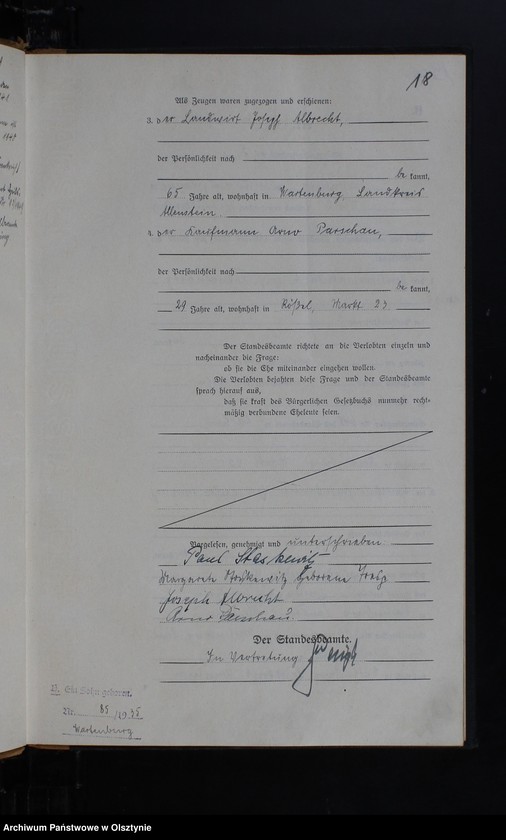 18
Als Zeugen waren zugezogen und erschienen:
3. der Landwirt Joseph Albrecht,
der Persönlichkeit nach
bekannt,
65 Jahre alt, wohnhaft in Wartenburg, Landkreis
Allenstein
4. der Kaufmann Arno Parschau,
der Persönlichkeit nach
bekannt,
29 Jahre alt, wohnhaft in Rößel, Markt 23.
Der Standesbeamte richtete an die Verlobten einzeln und
nacheinander die Frage:
ob sie die Ehe miteinander eingehen wollen.
Die Verlobten bejahten diese Frage und der Standesbeamte
sprach hierauf aus,
daß sie kraft des Bürgerlichen Gesetzbuchs nunmehr recht-
mäßig verbundene Eheleute seien.
Vorgelesen, genehmigt und unterschrieben
Paul Staskewitz
Margarete Staskewitz geborene
Joseph Albrecht
Arno Parschau
Der Standesbeamte.
In Vertretung
Ein Sohn geboren.
Nr. 85/1935
Wartenburg
Archiwum Państwowe w Olsztynie